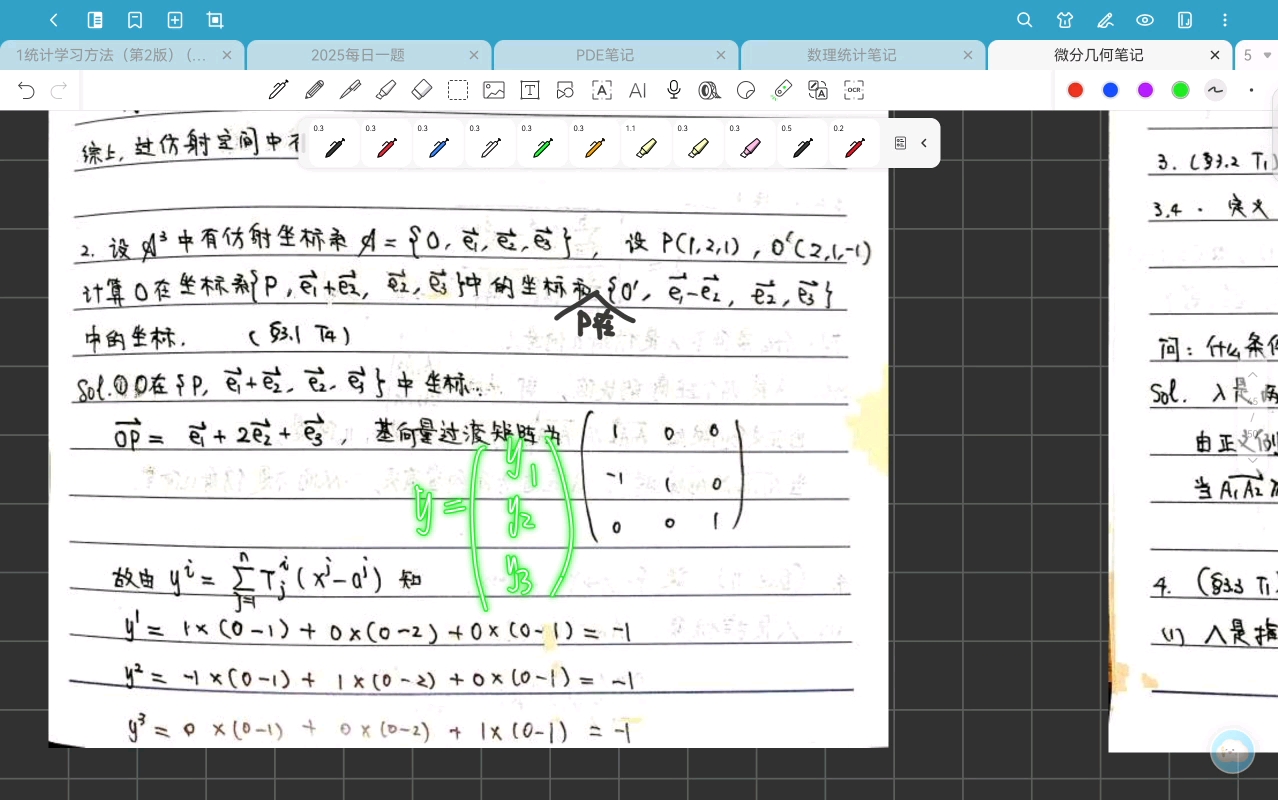 1统计学习方法（第2版）(...
2025每日一题
PDE笔记
数理统计笔记
微分几何笔记
5
T
A
AI
A
OCR
0.3 0.3 0.3 0.3 0.3 0.3 1.1 0.3 0.3 0.5 0.2
综上，过仿射空间中
2. 设 A³ 中有仿射坐标系 A = {O, e₁→, e₂→, e₃→}, 设 P(1,2,1), O'(2,1,-1)
计算 O 在坐标系{P, e₁→+e₂→, e₂→, e₃→}中的坐标和 {O', e₁→-e₂→, e₂→, e₃→}
P在
中的坐标. (§3.1 T4)
Sol.① O在{P, e₁→+e₂→, e₂→, e₃→}中坐标.
OP→ = e₁→ + 2e₂→ + e₃→, 基向量过渡矩阵为
1 0 0
-1 1 0
0 0 1
y =
y1
y2
y3
故由 yⁱ = ∑ⁿⱼ₌₁ Tⁱⱼ (xʲ - aʲ) 知
y¹ = 1×(0-1) + 0×(0-2) + 0×(0-1) = -1
y² = -1×(0-1) + 1×(0-2) + 0×(0-1) = -1
y³ = 0×(0-1) + 0×(0-2) + 1×(0-1) = -1
3. (§3.2 T1)
3.4. 定义
问：什么条件
Sol. 入是
由正
当 A₁A₂→
4. (§3.3 T1
(1) 入是指